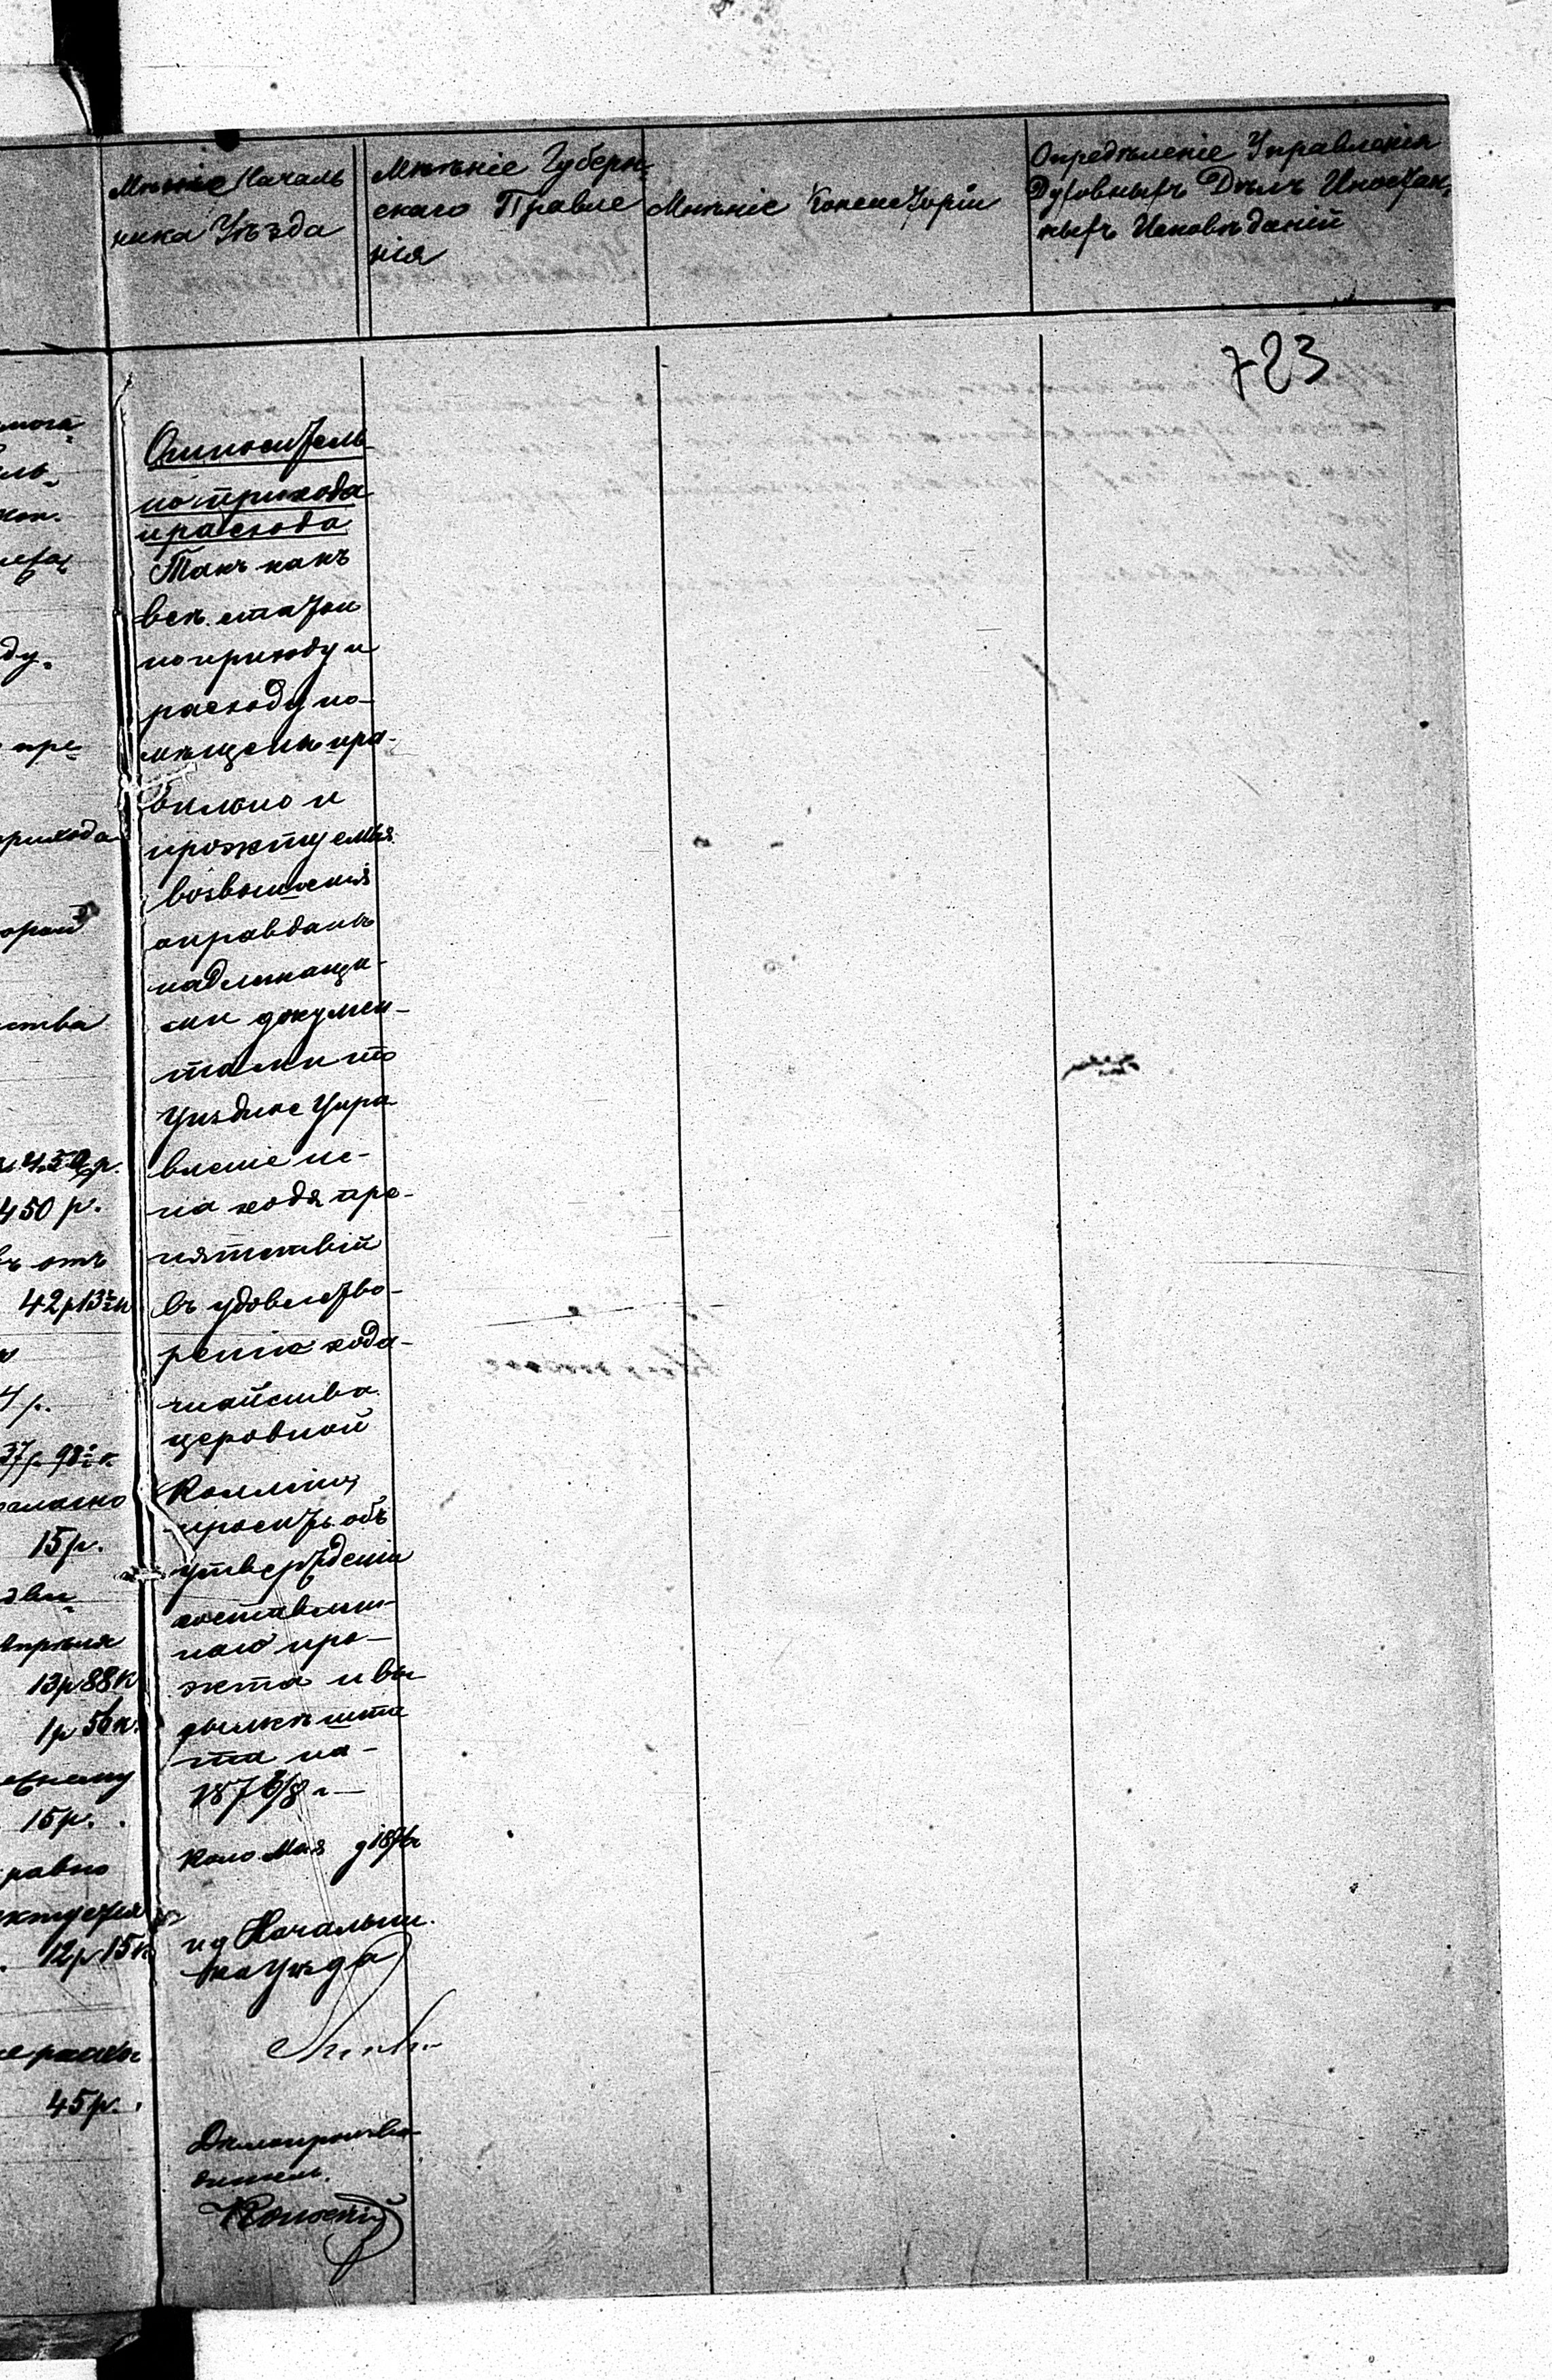 Мнѣніе Началь
ника Уѣзда
Мнѣніе Губерн-
скаго Правле
нія
Мнѣніе Консисторіи
Опредѣленіе Управленія
Духовныхъ Дѣлъ Иностран-
ныхъ Исповѣданій
723
Относитель-
но прихода
и расхода
Такъ какъ
всѣ статьи
по приходу и
расходу по-
мѣщены пра-
вильно и
проэктуемыя
возвышенія
оправданы
надлежащи-
ми докумен-
тами то
Уѣздное Упра
вленіе не-
находя пре-
пятствій
въ удовлетво-
реніе хода-
тайства
церковной
Коллегіи
проситъ объ
утвержденіи
составлен-
наго про-
экта и вы
сылкѣ шта
та на-
187 6/8 г.
Коло Мая д 1876 г
и д Начальни.
ка Уѣзда
Дѣлопроизво-
дитель
мога
ль-
коп.
ду.
пре
прихода
орой
ства
450 р.
450 р.
ъ отъ
42 р 13½ к
4 р.
37 р 98½ к
15 р.
Апрѣля
13 р 88 к
1 р 56 к.
15 р.
равно
12 р 15 к
45 р.